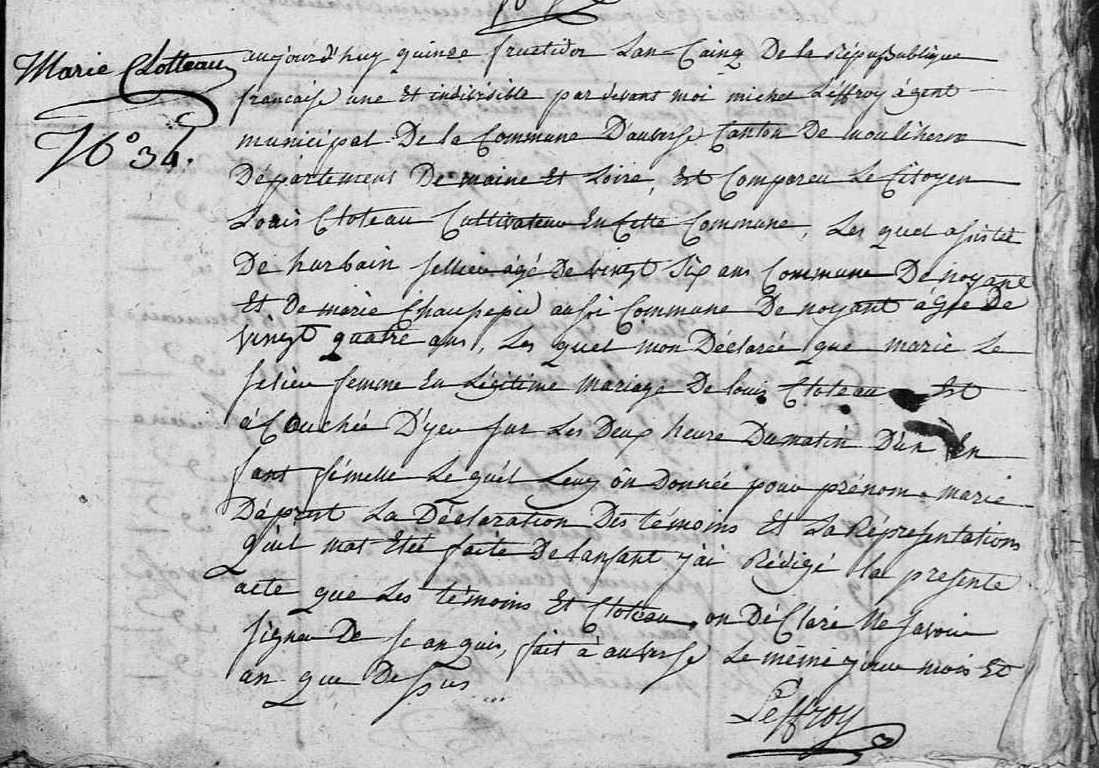 Marie Clotteau
N° 34.
aujourd'huy quinze fructidor Lan Cainq De la Républiqque
francaise une Et indivisible par devant moi michel Leffroy agent
municipal De la Commune D'auverse Canton De mouliherne
Département De maine Et Loire, Est Compareu Le Citoyen
Louis Cloteau Cultivateur En Cette Commune, Les quel asisté
De hurbain sellieu agé De vingt Six ans Commune De noyant
Et De marie Chaupepie ausi Commune De noyant âgée De
vingt quatre ans, Les quel mon Déclarée que marie Le
selieu femme En Légitime mariage De louis Cloteau Est
àCouchée D'yeu sur Les Deux heure Du matin D'un En
fant fémelle Le quél Leuy ôn Donnée pour prénom marie
D'âprest La Déclaration Des témoins Et La Réprésentations
quil mat Etée faite De lanfant j'ai Rédigé la présente
acte que Les témoins Et Cloteau on DéClaré Ne savoir
signer De se anquis, fait à auverse Le même jour mois Et
an que Dessus ...
Leffroy